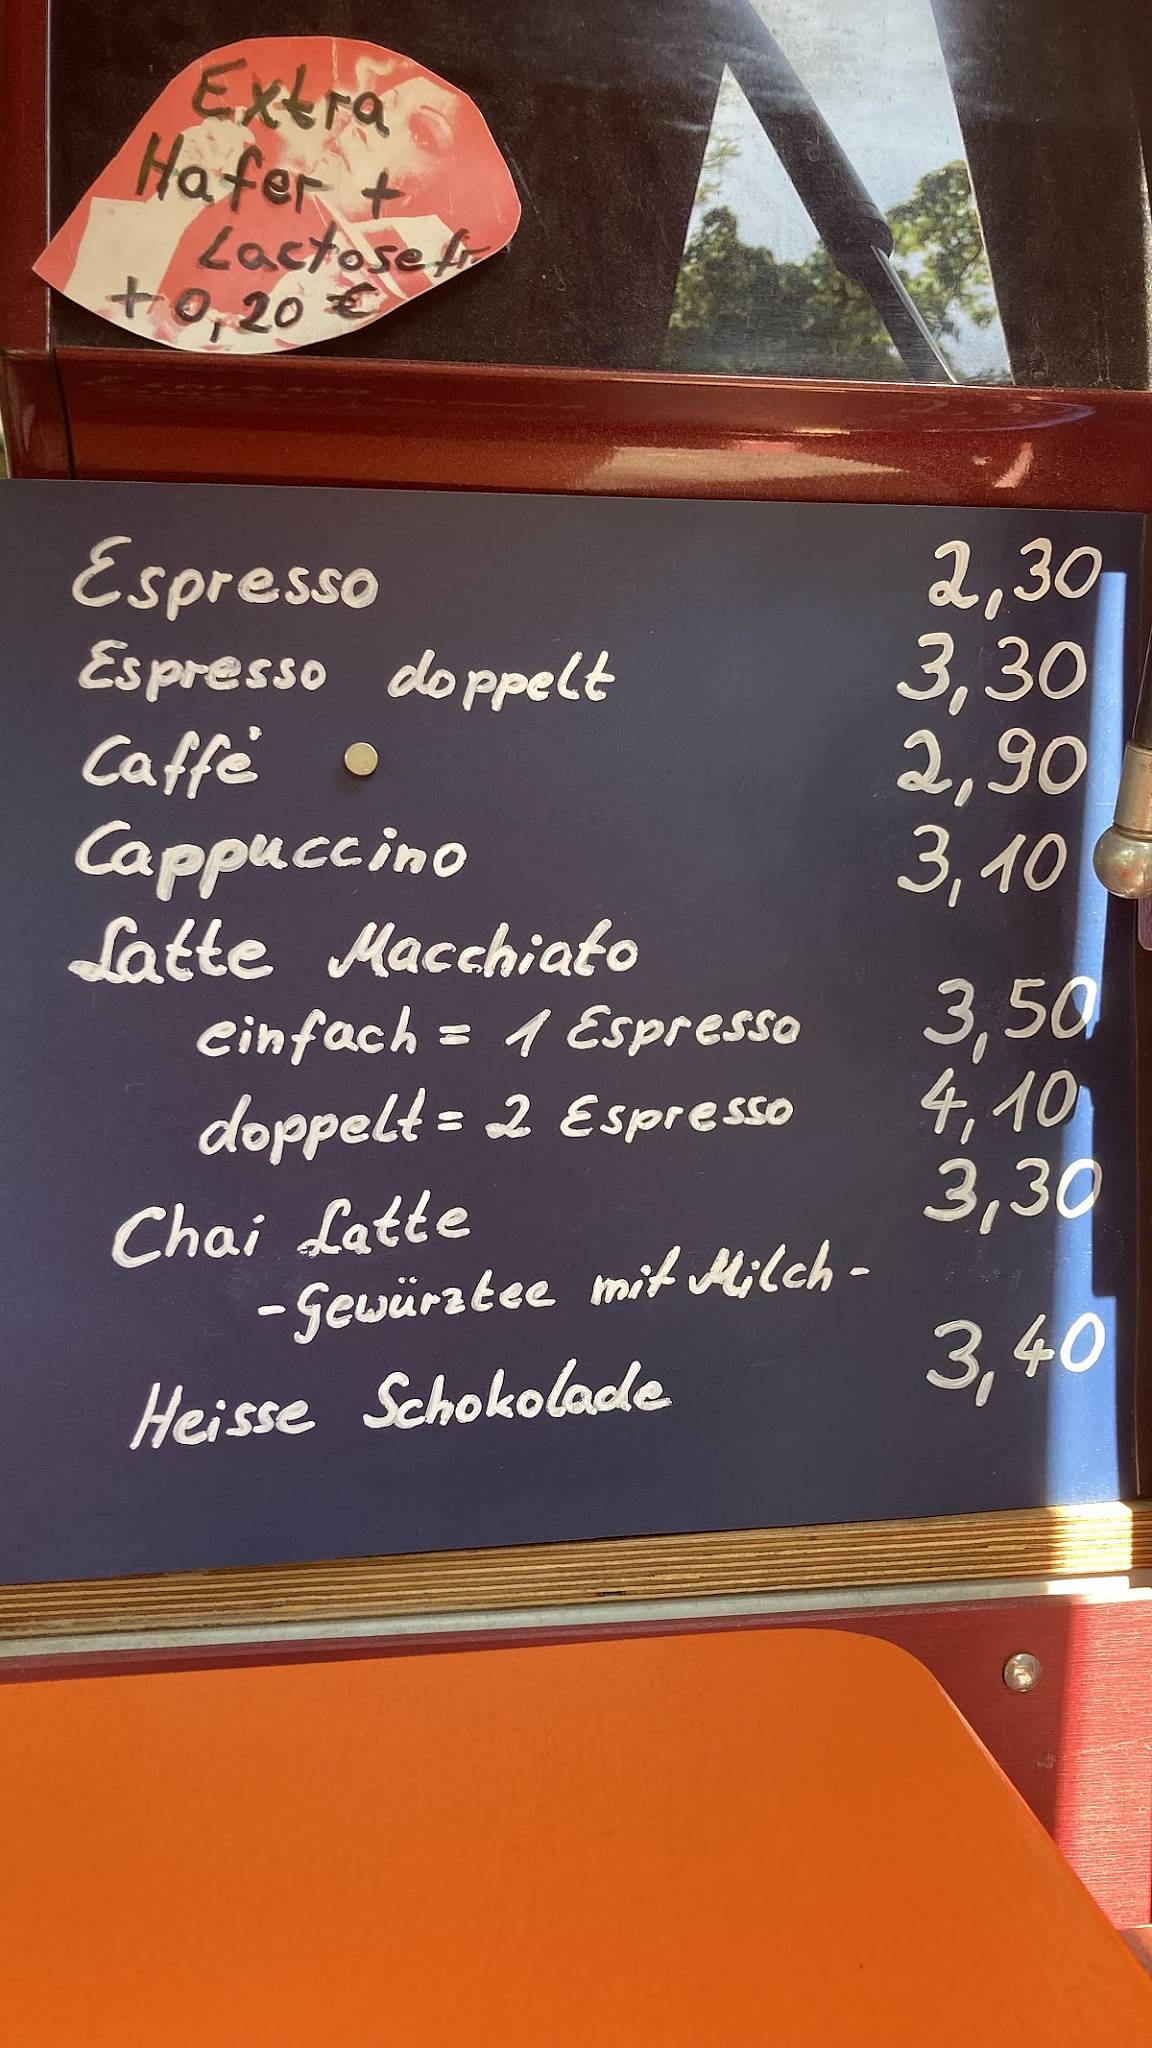 Extra
Hafer +
Lactosefr
+ 0,20 €
Espresso 2,30
Espresso doppelt 3,30
Caffè 2,90
Cappuccino 3,10
Latte Macchiato
einfach = 1 Espresso 3,50
doppelt = 2 Espresso 4,10
Chai Latte 3,30
- Gewürztee mit Milch -
Heisse Schokolade 3,40